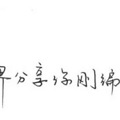 界分享你刚编